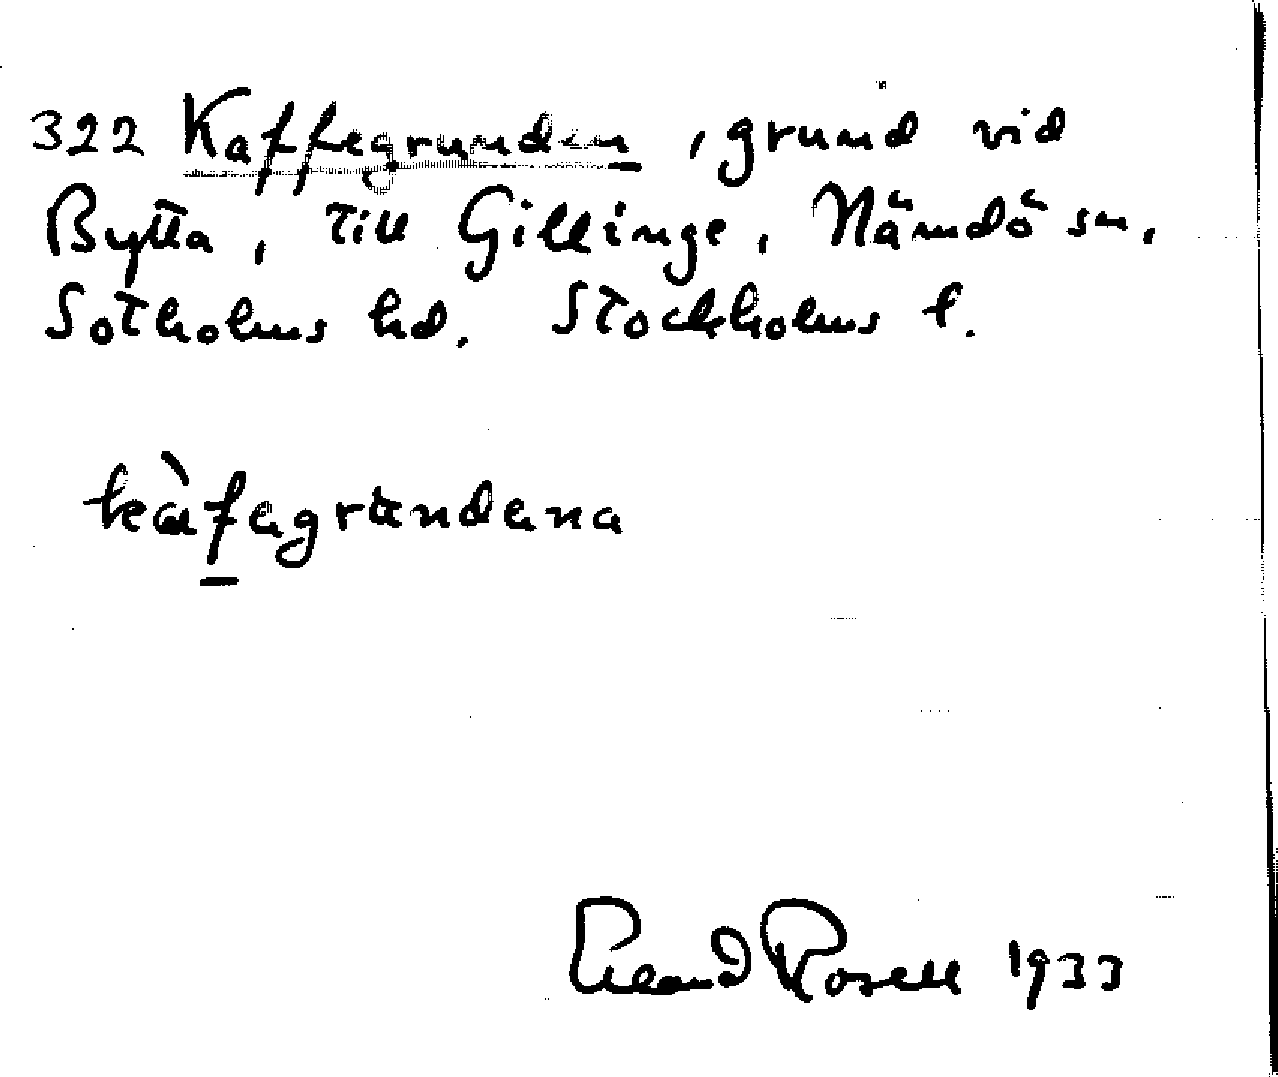 322 Kaffegrunden, grund vid
Bytta, till Gillinge, Nämdö sn,
Sotholms hd. Stockholms l.
kàfagrundena
Erland Rosell 1933